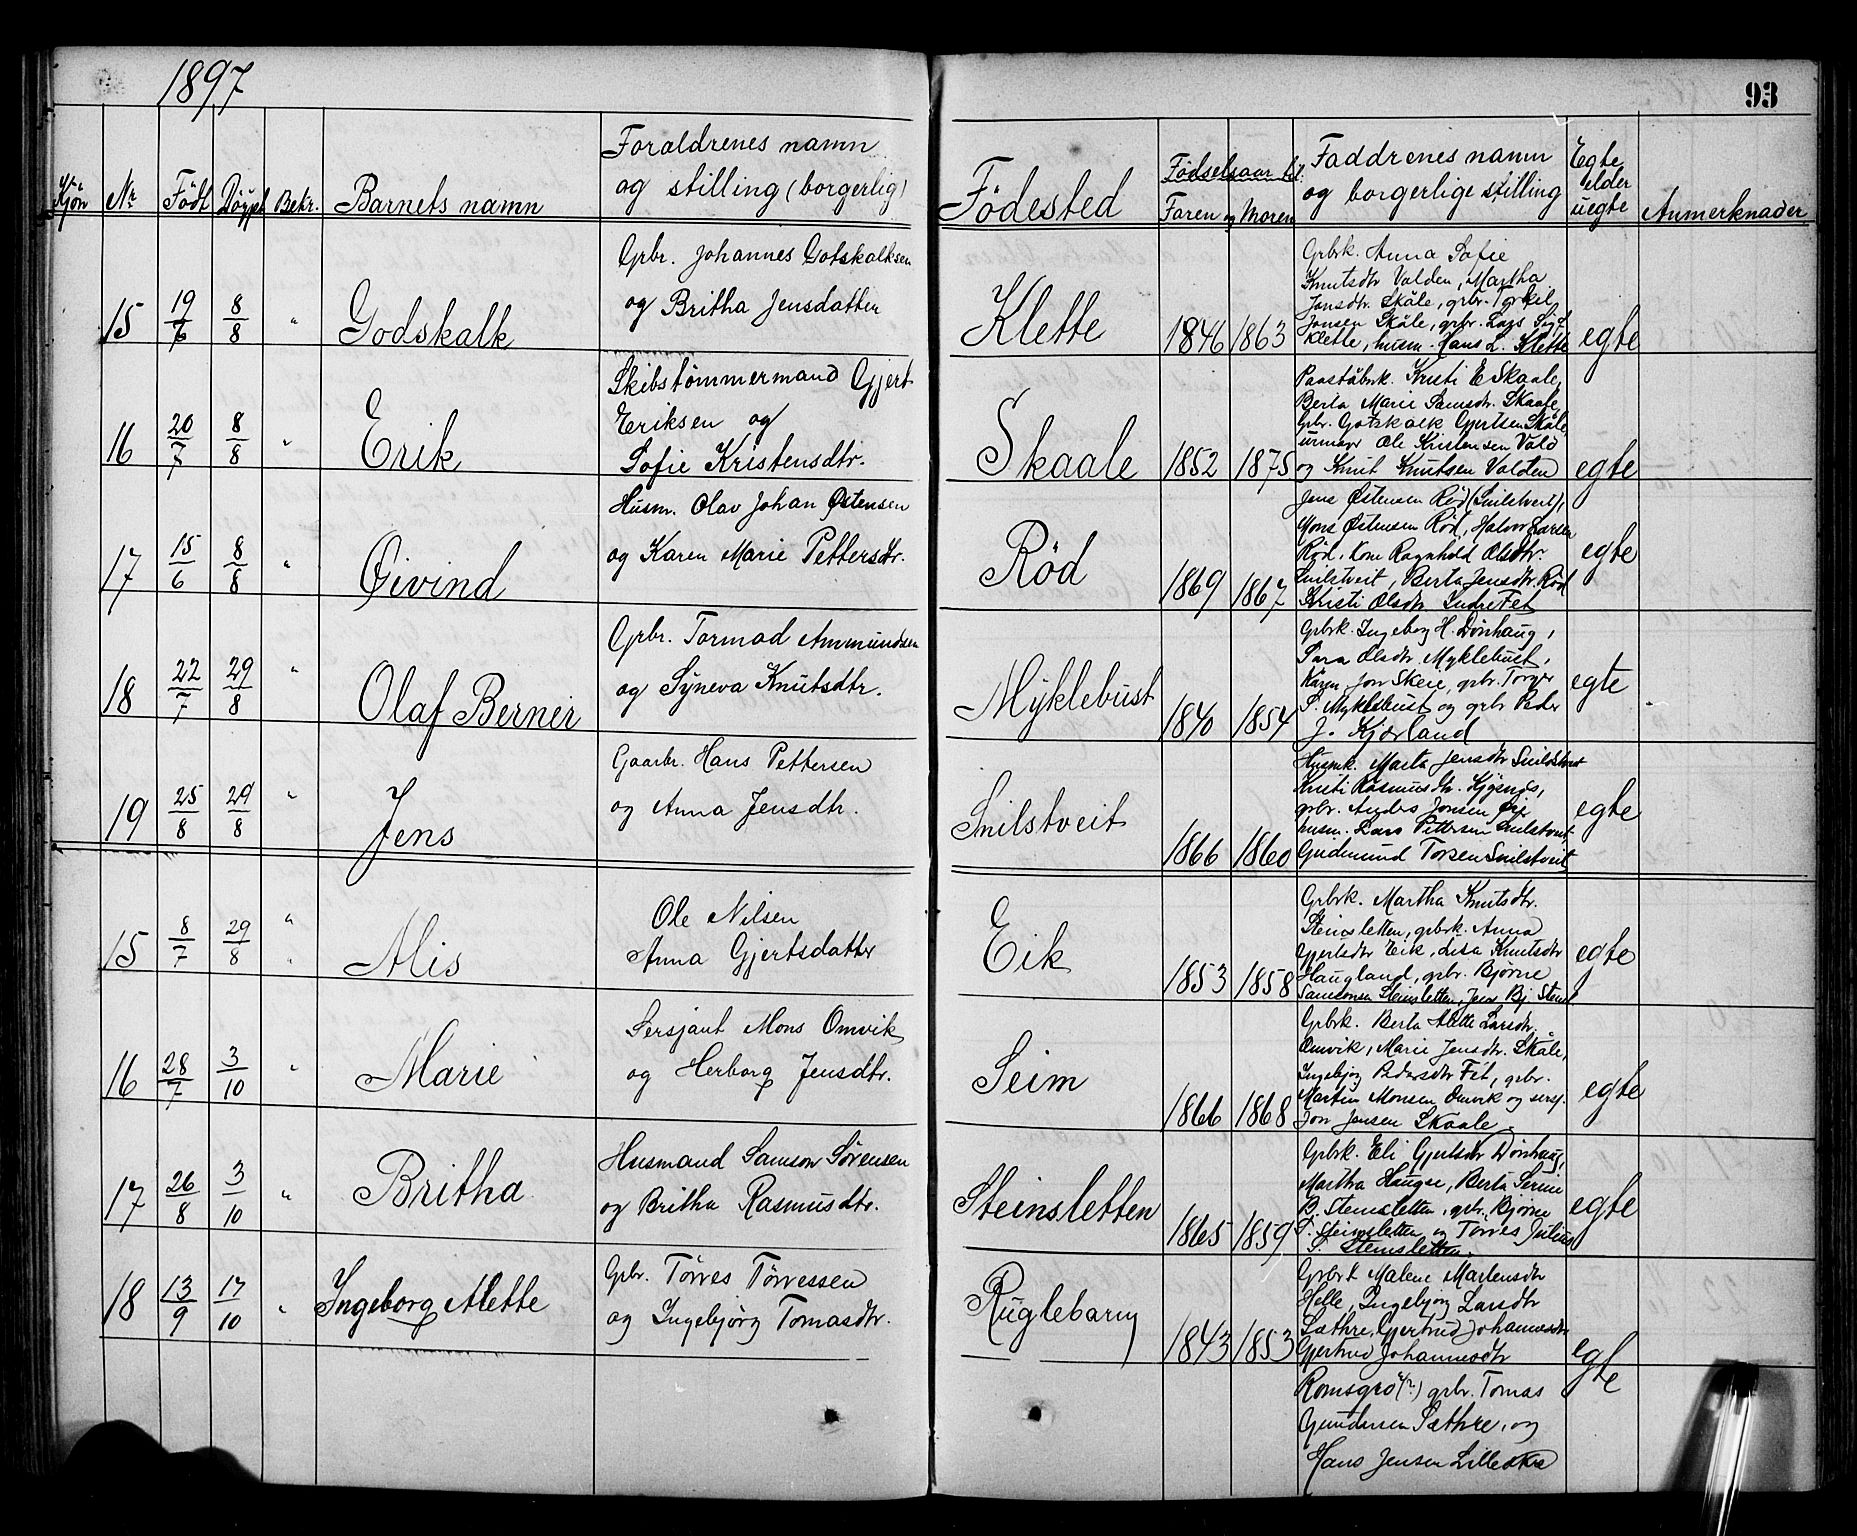 1897
93
Kjön Nr Födt Döypt Bekr. Barnets namn
Foraldrenes namn
og stilling (borgerlig)
Födested
Födselsaar til:
Faren og Moren
Faddrenes namn
og borgerlige stilling
Egte
elder
uegte
Anmerknader
15 19/7 8/8 " Godskalk
Grbr. Johannes Gotskalksen
og Britha Jensdatter
Klette 1846 1863
Grbrk. Anna Sofie
Knutsdtr Valden, Martha
Jonsdtr. Skåle, grbr. Torkel
Jonsen Skåle, grbr. Lars
Klette, husm. Hans L. Klette
egte
16 20/7 8/8 " Erik
Skibstömmermand Gjert
Eriksen og
Sofie Kristensdtr.
Skaale 1852 1875
Kristi E Skaale,
Berta Marie Samsdtr. Skaale,
Grbr. Gotskalk Gjertsen Skåle
urmagr Ole Kristensen Vald
og Knut Knutsen Valden
egte
17 15/6 8/8 " Øivind
Husm. Olav Johan Østensen
og Karen Marie Pettersdtr.
Röd 1869 1867
Jens Østensen Rød (Snilstveit),
Mons Østensen Rød, Halvor Larsen
Rød, Kone Ragnhild Olsdtr
Snilstveit, Berta Jensdtr. Rød
Kristi Olsdtr. Indre Fet
egte
18 22/7 29/8 " Olaf Berner
Grbr. Tormod Ammundsen
og Syneva Knutsdtr.
Myklebust 1840 1854
Grbrk. Ingeborg H. Dönhaug,
Sara Olsdtr. Myklebust,
Karen Jon Skeie, grbr. Torger
S. Myklebust og grbr Peder
J. Kjærland
egte
19 25/8 29/8 " Jens
Gaarbr. Hans Pettersen
og Anna Jensdtr.
Snilstveit 1866 1860
Husmk. Marta Jensdtr Snildstveit
Kristi Rasmusdtr.
grbr. Anders Jonsen Øie
husm. Lars Pettersen Snilstveit,
Gudmund Torsen Snilstveit
egte
15 8/7 29/8 " Alis
Ole Nilsen
Anna Gjertsdatter
Eik 1853 1858
Grbrk. Martha Knutsdtr.
Steinsletten, grbrk. Anna
Gjertsdtr Eik, Lisa Knutsdtr
Haugland, grbr. Bjørne
Samsonsen Steinsletten, Jens Bj Steinsl
egte
16 28/7 3/10 " Marie
Sersjant Mons Omvik
og Herborg Jensdtr.
Seim 1866 1868
Grbrk. Berta Alette Larsdtr.
Omvik, Marie Jensdtr. Skåle,
Ingebjorg Pedersdtr Fet, grbr.
Martin Monsen Omvik og sersj.
Jon Jensen Skaale.
egte
17 26/8 3/10 " Britha
Husmand Samson Sørensen
og Britha Rasmusdtr.
Steinsletten 1865 1859
Grbrk. Eli Gjertsdtr Dönhaug,
Martha Haugse, Berta Serine
B. Steinsletten, grbr. Bjørne
S. Steinsletten og Törres Julius
S. Steinsletten.
egte
18 13/9 17/10 " Ingeborg Alette
Grbr. Törres Törressen
og Ingebjörg Tomasdtr.
Ruglebarm 1843 1853
Grbrk Malene Martensdtr
Helle, Ingebjorg Larsdtr
Sæthre, Gjertrud Johannesdtr
Gjertrud Johannesdtr
Romsgrö (?) grbr. Tomas
Gundersen Sæthre, og
Hans Jensen
egte